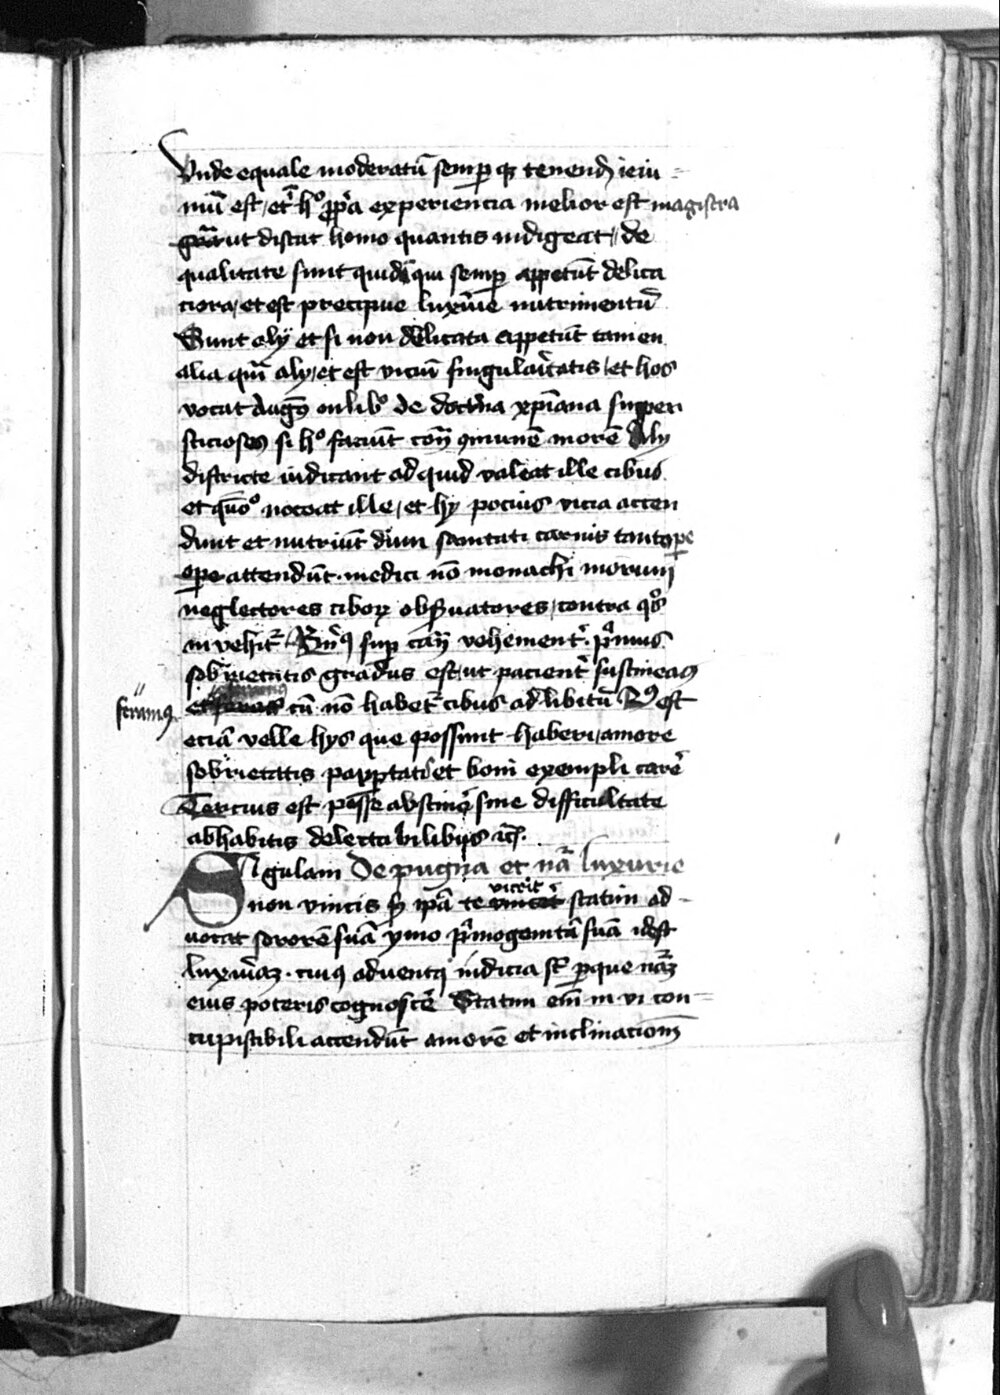 Unde equale moderatū semp q tenend ieiu=
niū est / et ī hº ꝓpͥa experiencia melior est magistra
ut discat homo quantis indigeat / de
qualitate sunt quidā qui semp appetūt delica
ciora / et est precipue luxurie nutrimentū
Sunt alij et si non delicata appetūt tamen
alia qm̄ alij / et est viciū singularitatis / et hos
vocat Augᵘˢ in libº de doctrīa xp̄iana super
sticiosos si hº faciūt cont̄ cōmunē morē Alij
districte iudicant ad quid valeat ille cibus
et quōº noceat ille / et hij pocius vicia accen
dunt et nutriūt dum sanitati carnis tantope
ope attendūt . medici nō monachi morum
neglectores ciboꝝ obseruatores / contra qᵒˢ
inuehitʳ Bn̄ꝰ sup can̄ vehementʳ . pͥmus
sobrietatis gradus est / ut pacientʳ sustineaꝰ
feramꝰ
et cū nō habetʳ cibus ad libitū 2ꝰ est
eciā velle hijs que possunt haberi / amore
sobrietatis paupertatis et boni exempli carēʳ
Tercius est posse abstinēʳ sine difficultate
ab habitis delectabilibus ⁊c̄ .
De pugna et nāͣ luxurie
SI gulam
non vincis s ipā te vicerit statim ad-
uocat sororē suā ymo pͥmogenitā suā idest
luxuriaꝫ . cuiꝰ aduentꝰ indicia sʳ perque nāꝫ
eius poteris cognoscēʳ Statim eni in vi con=
cupiscibili accendūt amorē et inclinacionē